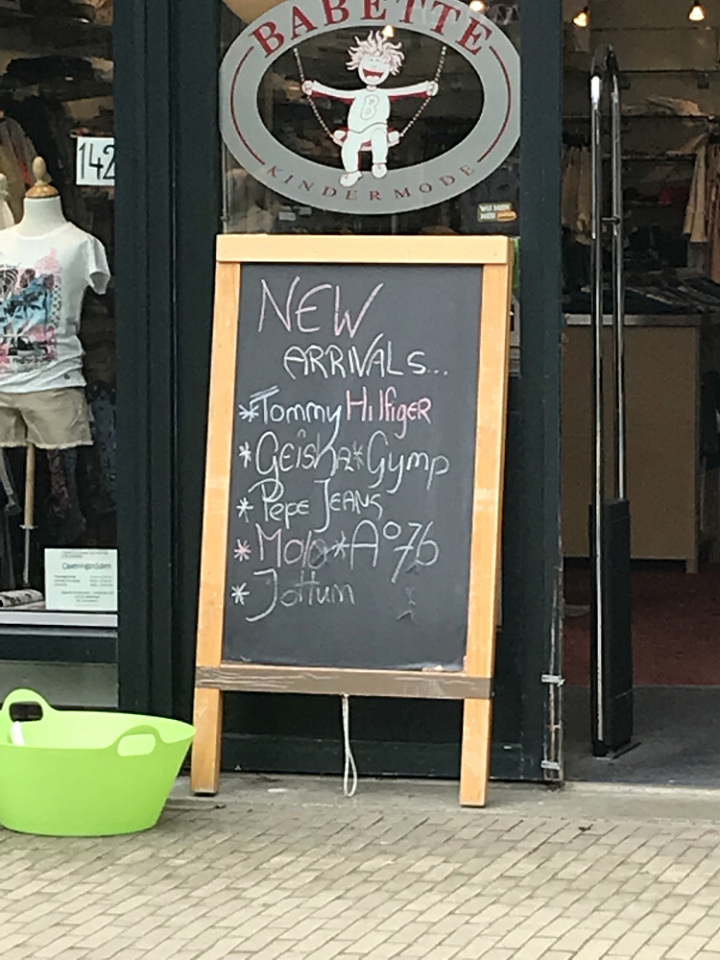 BABETTE
B
KINDERMODE
142
NEW
ARRIVALS...
*Tommy Hilfiger
*Geisha*Gymp
*Pepe JEANS
*Molo*A°76
*Jottum
Openingstijden